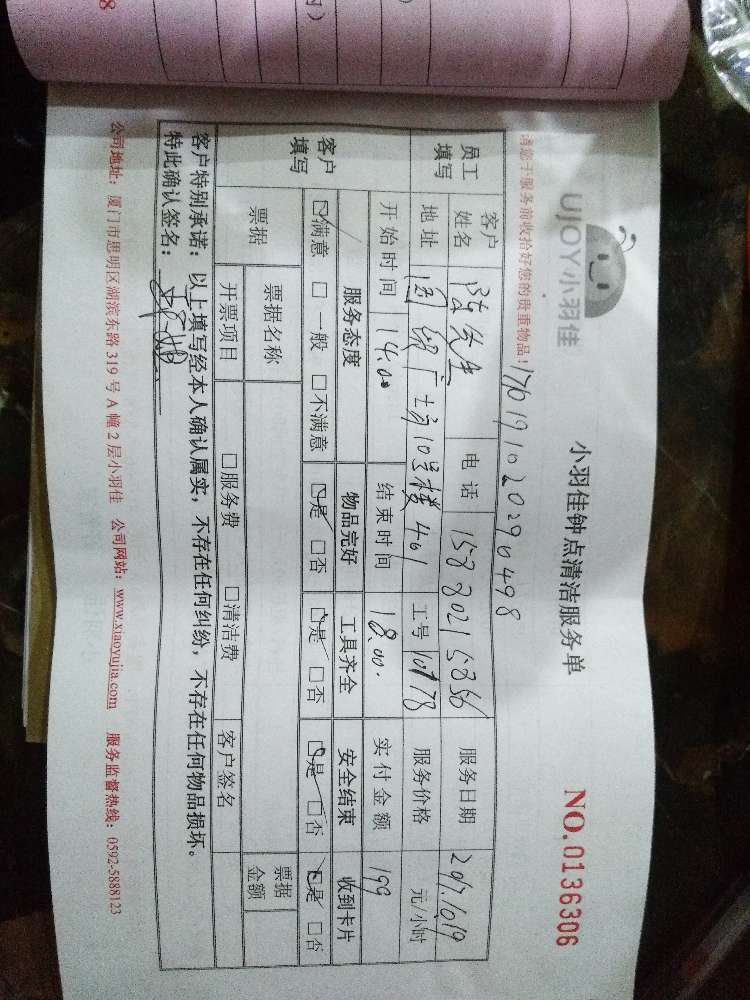 UJOY小羽佳
小羽佳钟点清洁服务单
NO.0136306
请您于服务前收拾好您的贵重物品!
170191020290498
员工填写 客户姓名 陈先生 电话 15880215856 服务日期 2017.10.19
地址 国贸广场10号楼401 工号 10178 服务价格 元/小时
开始时间 14.00 结束时间 18.00. 实付金额 199
客户填写 服务态度 物品完好 工具齐全 安全结束 收到卡片
☑满意 □一般 □不满意 ☑是 □否 ☑是 □否 ☑是 □否 ☑是 □否
票据 票据名称 票据金额
开票项目 □服务费 □清洁费 客户签名
客户特别承诺:以上填写经本人确认属实,不存在任何纠纷,不存在任何物品损坏。
特此确认签名:
公司地址:厦门市思明区湖滨东路319号A幢2层小羽佳 公司网站:www.xiaoyujia.com 服务监督热线:0592-5888123